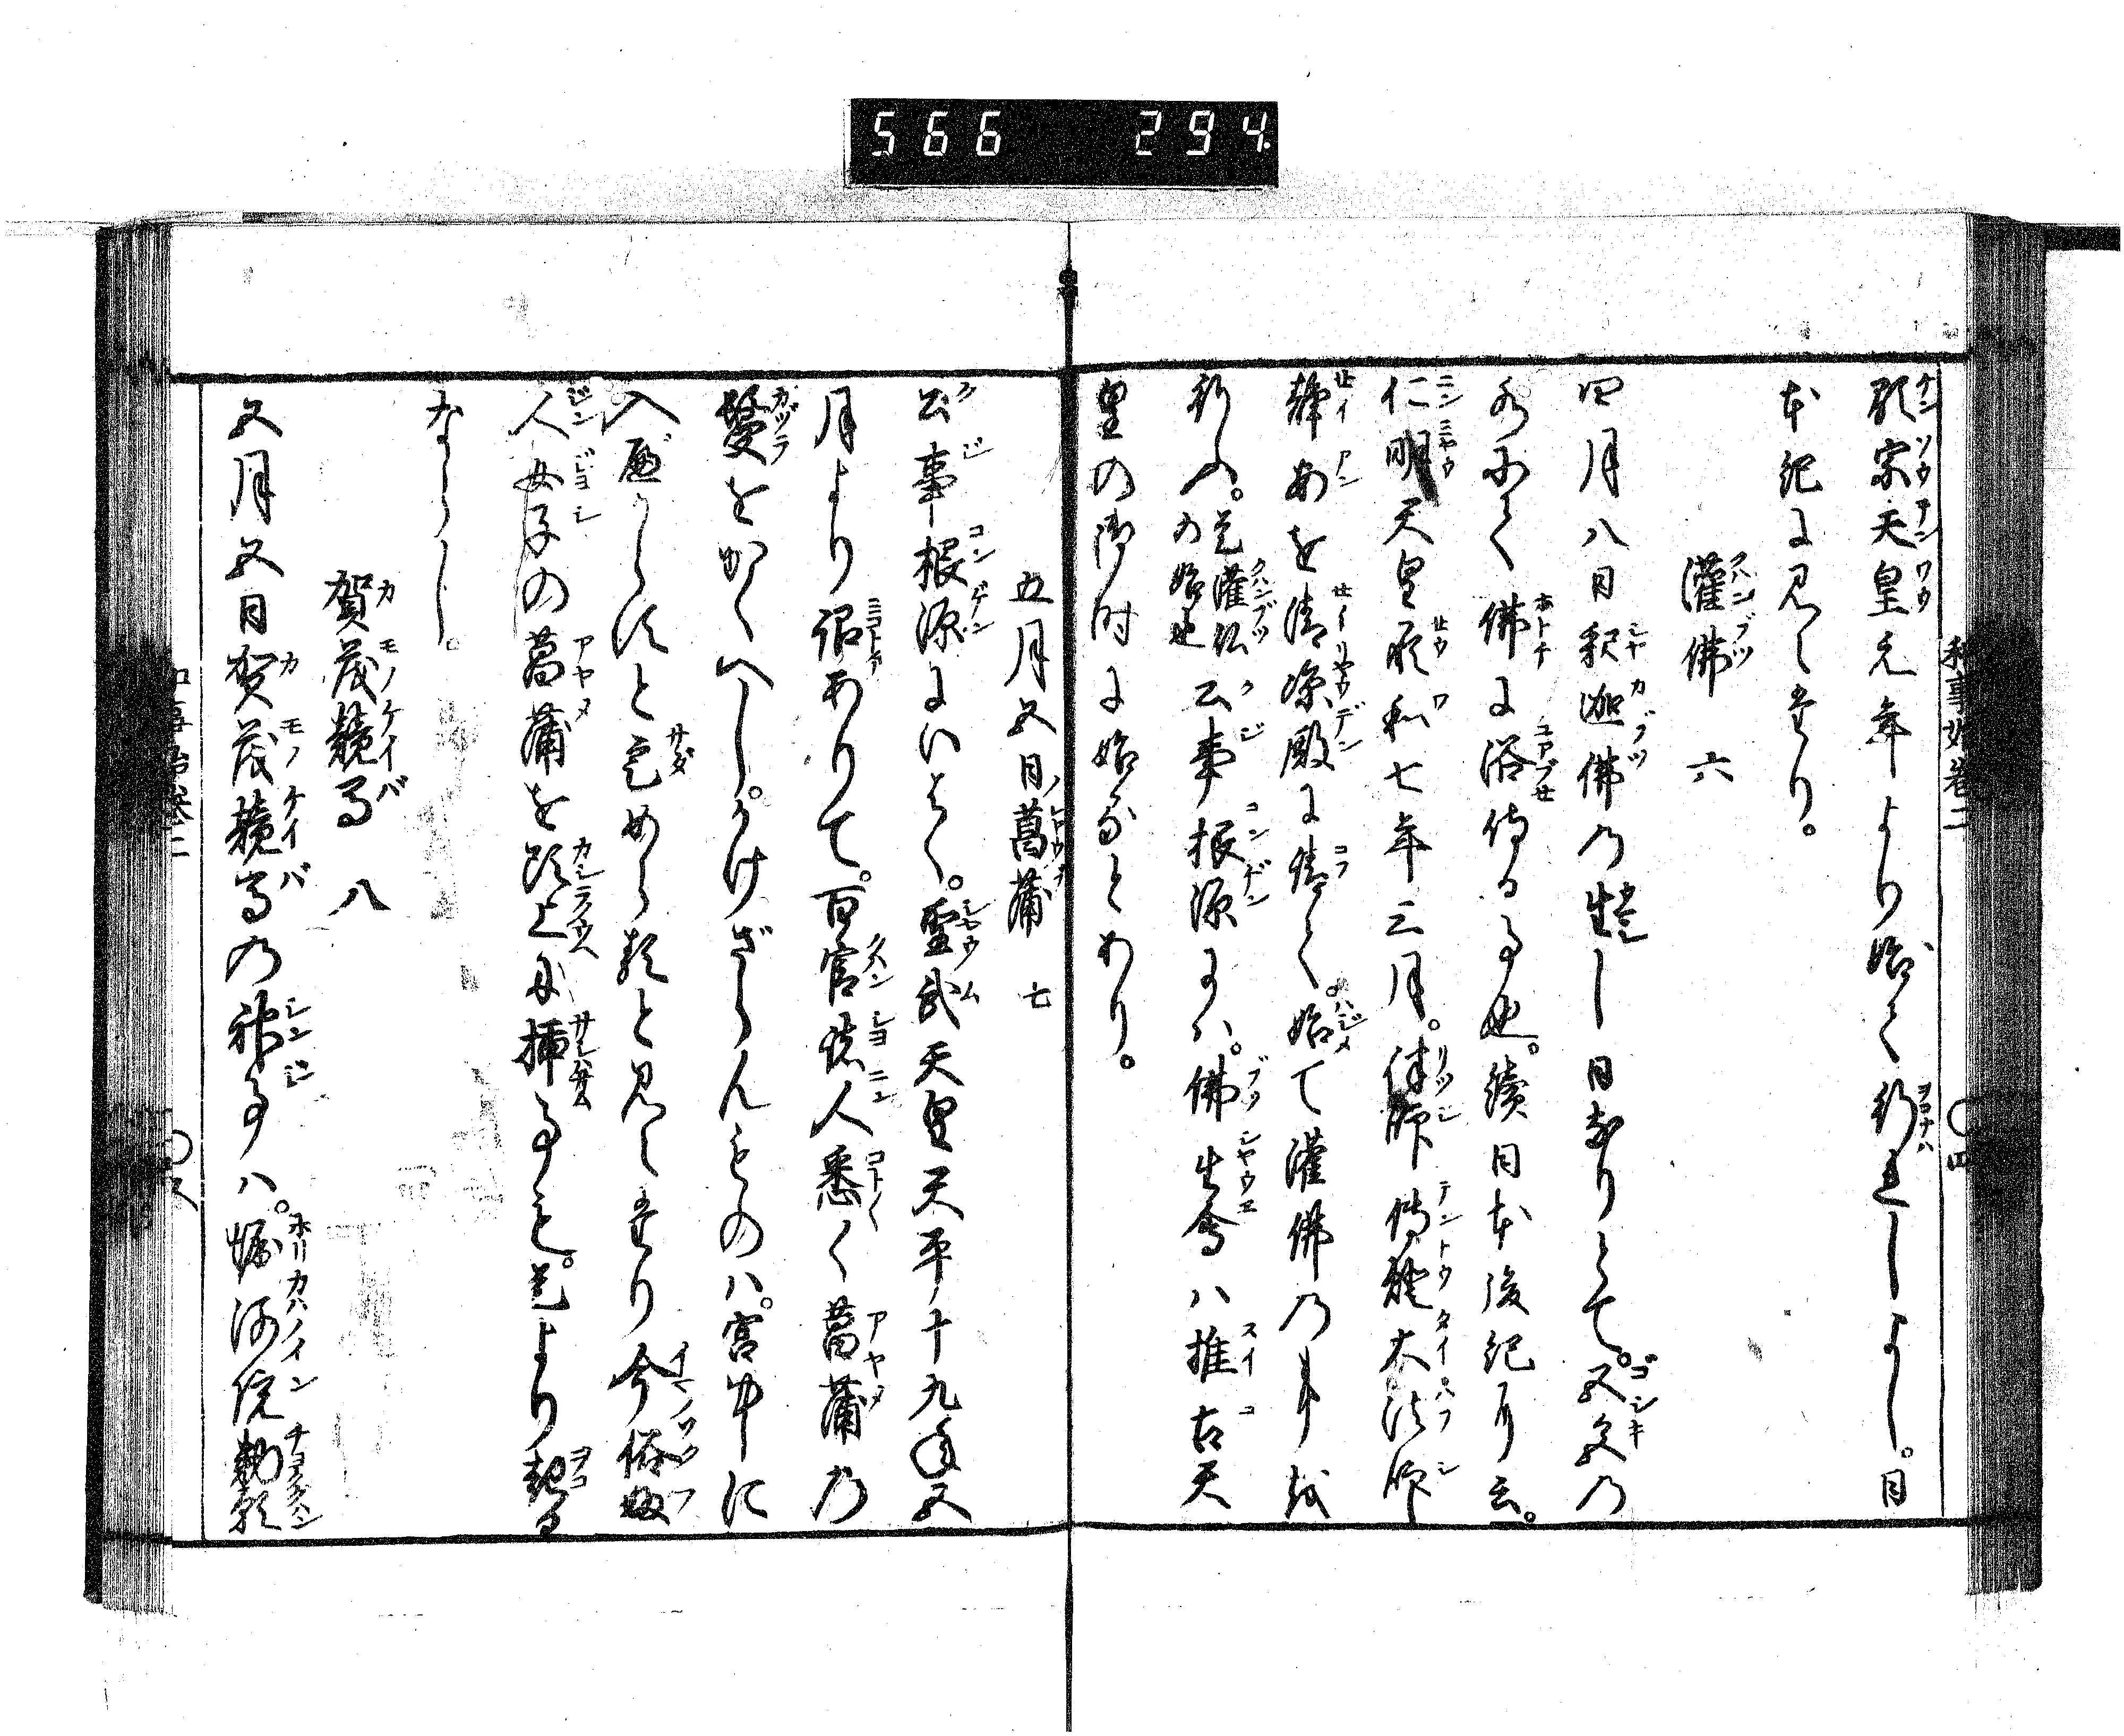 566 294
和事始巻二 〇四
顕宗天皇元年より始て行れしよし。日
本紀に見えたり。
灌佛 六
四月八日釈迦佛の生し日なりとて。五色の
水にて佛に浴侍る事也。續日本後紀に云。
仁明天皇承和七年三月。律師傳燈大法師
静安を清凉殿に請て。始て灌佛の事を
行ふ。是灌仏の始也 公事根源には。佛生會ハ推古天
皇の御時に始るとあり。
五月五日菖蒲 七
公事根源にいはく。聖武天皇天平十九年五
月より詔ありて。百官諸人悉く菖蒲の
鬘をかくへし。かけざらんものハ。宮中に
入へからすと定めらると見えたり今俗婦
人女子の菖蒲を頭上に挿事も。是より起る
ならし。
賀茂競馬 八
五月五日賀茂競馬の神事ハ。堀河院勅願